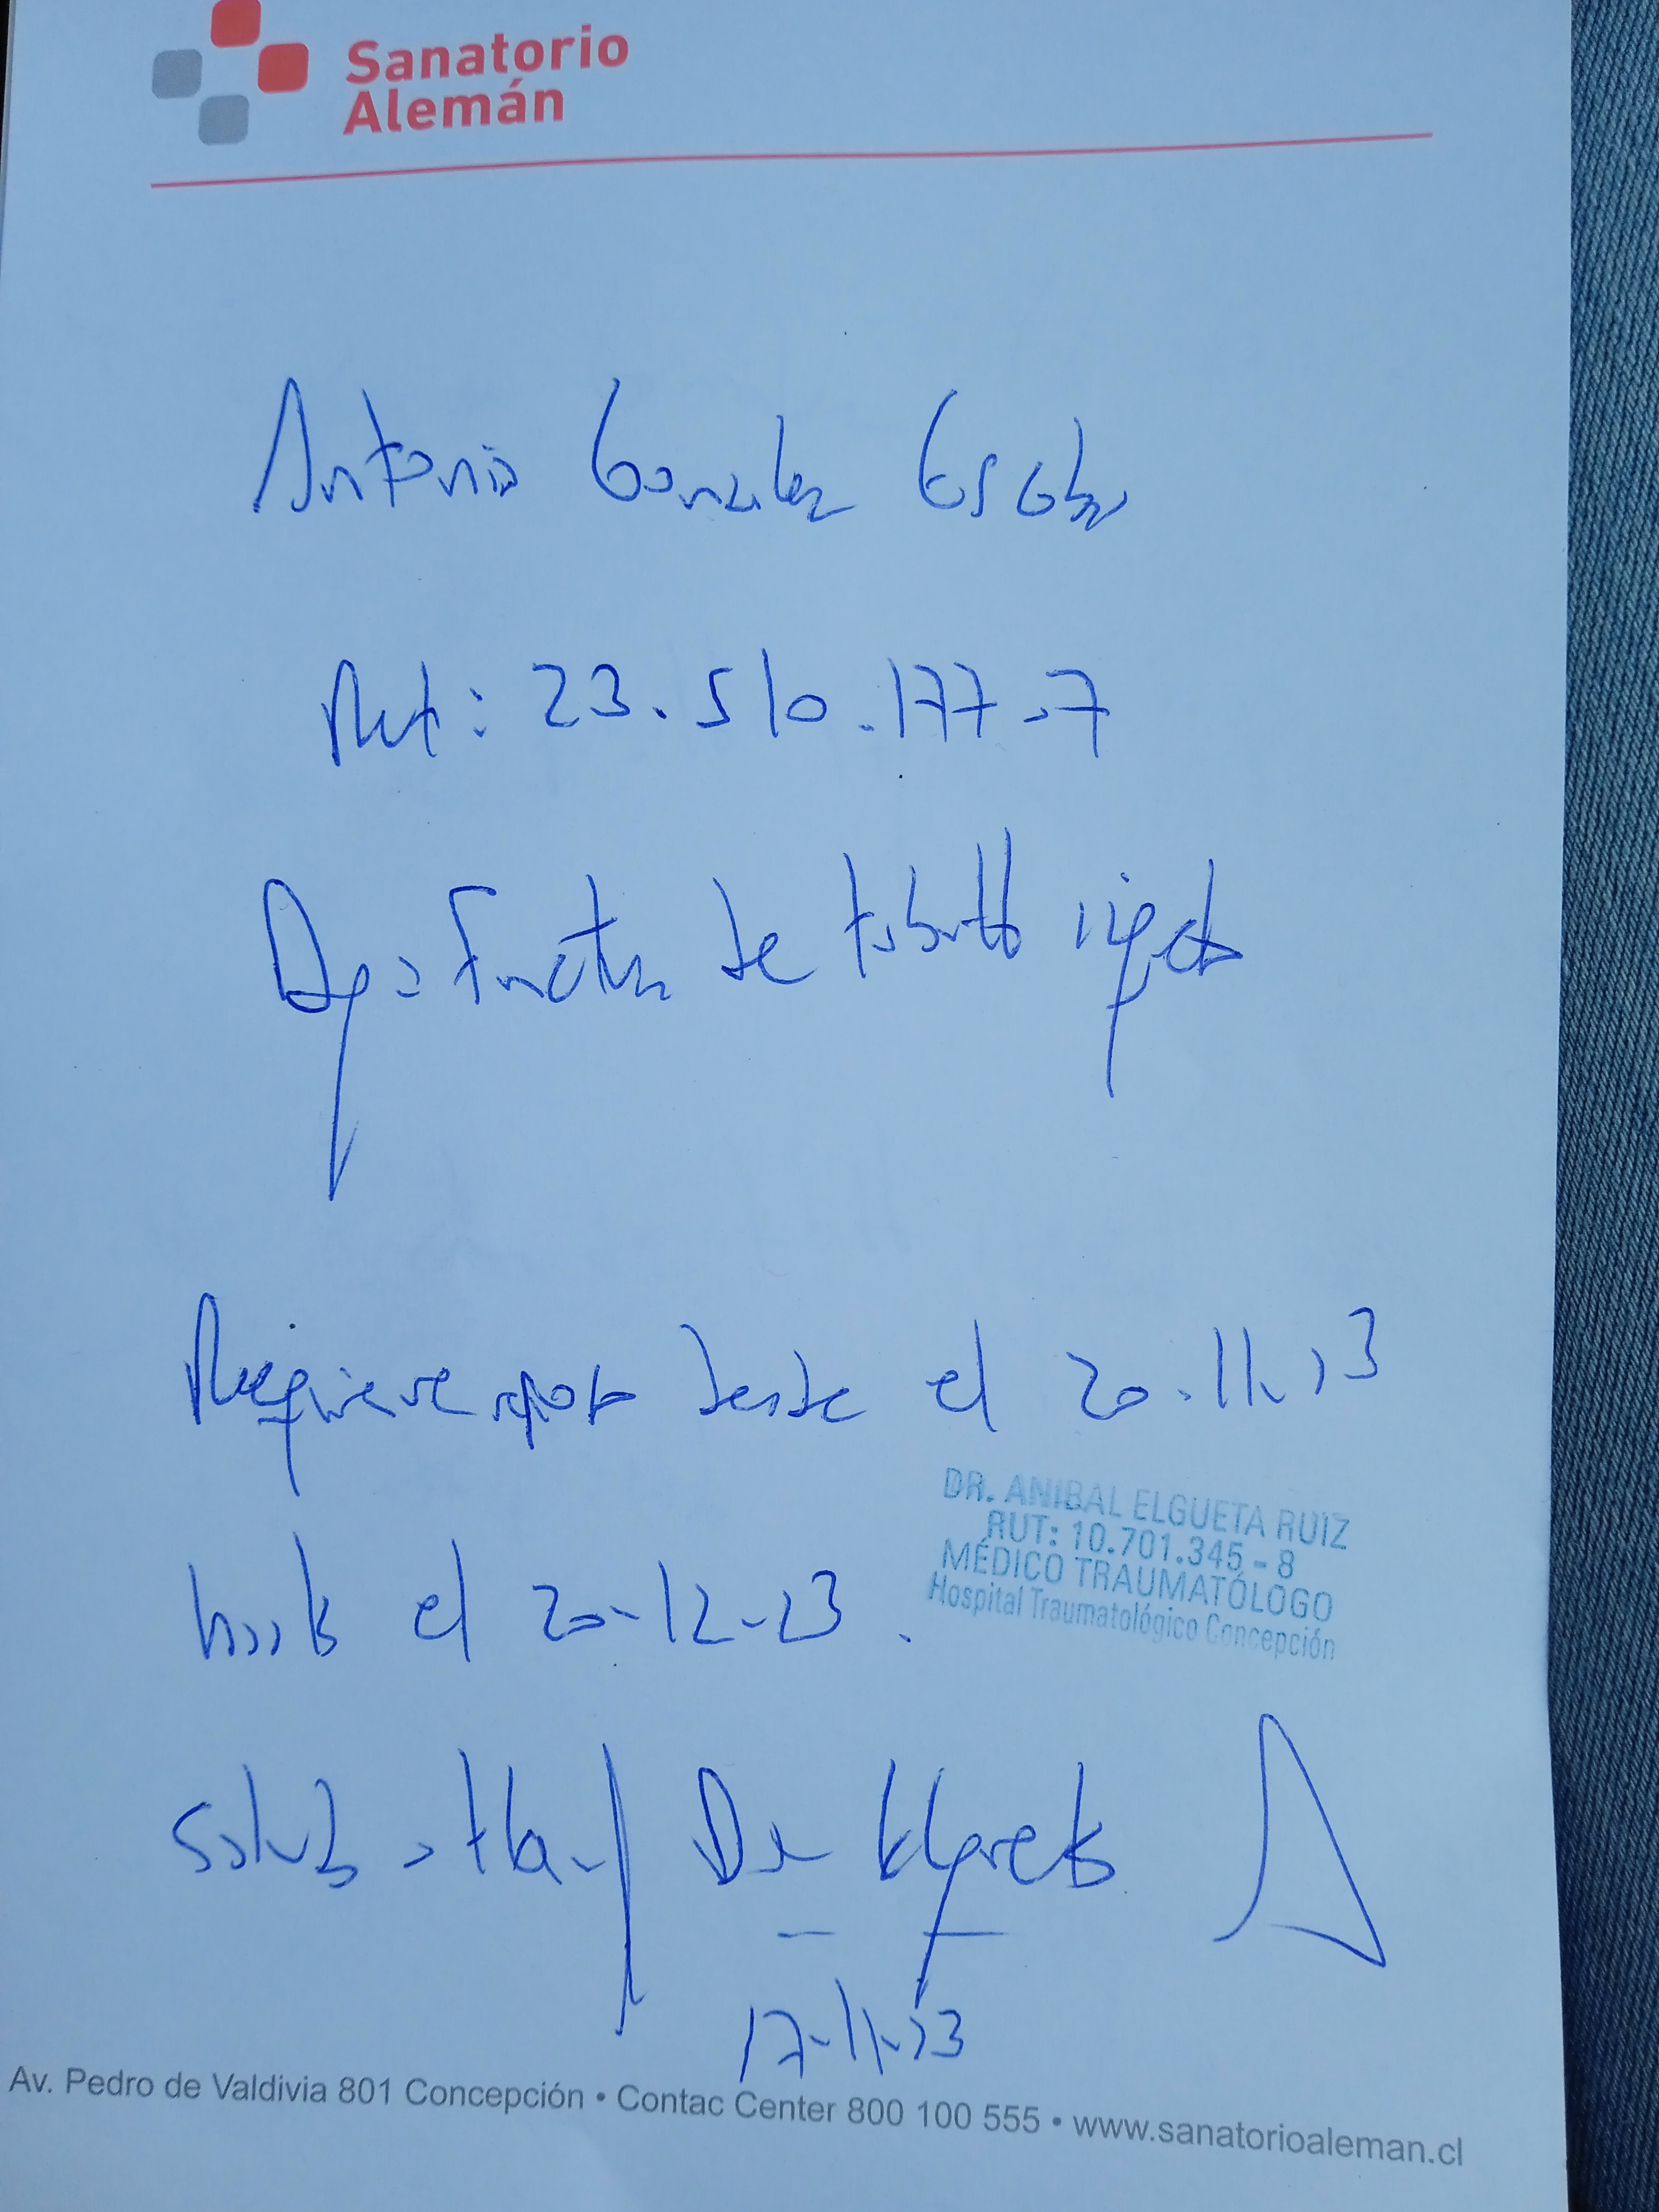 Sanatorio
Alemán
Antonio Gonzalez Escobar
Rut: 23.510.177-7
Dg: Fractura de tobillo izquierdo
Requiere reposo desde el 20-11-23
DR. ANIBAL ELGUETA RUIZ
RUT: 10.701.345-8
MÉDICO TRAUMATÓLOGO
Hospital Traumatológico Concepción
hasta el 20-12-23.
Dr Elgueta
17-11-23
Av. Pedro de Valdivia 801 Concepción • Contac Center 800 100 555 • www.sanatorioaleman.cl